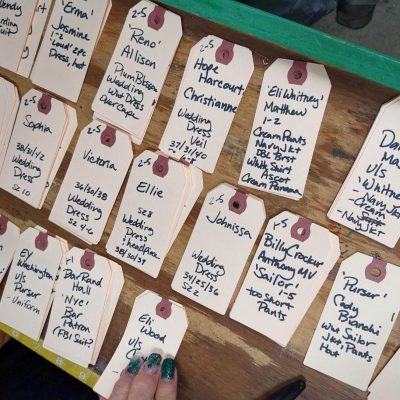 'Erma'
Jasmine
1-2
'Loud' 2pc
Dress, hat
2-5
'Reno'
Allison
Plum Blossom
Wedding
Wht Dress
2-5
Hope
Harcourt
Christianne
Wedding
Dress
Veil
37/31/40
'Eli Whitney'
Matthew
1-2
Cream Pants
Navy Jkt
DBL Brst
Wht Shirt
Ascot
Cream Panama
U/S
'Whitney'
Navy
Jkt
Cream
Navy Jkt
2-5
Sophia
38/31/42
Wedding
Dress
Sz 10
2-5
Victoria
36/30/38
Wedding
Dress
2-5
Ellie
Sz 8
Wedding
Dress
38/30/39
2-5
Johnissa
Wedding
Dress
34/25/36
Sz 2
2-5
Billy Crocker
Anthony MV
'Sailor' 1-5
too Short
Pants
'Purser'
Cody
Bianchi
Wht Sailor
Jkt Pants
Hat
Washington
U/S
Purser
-Uniform
Hal
'NYC'
Bar
Patron
(FBI Suit?
Eli
Wood
U/S